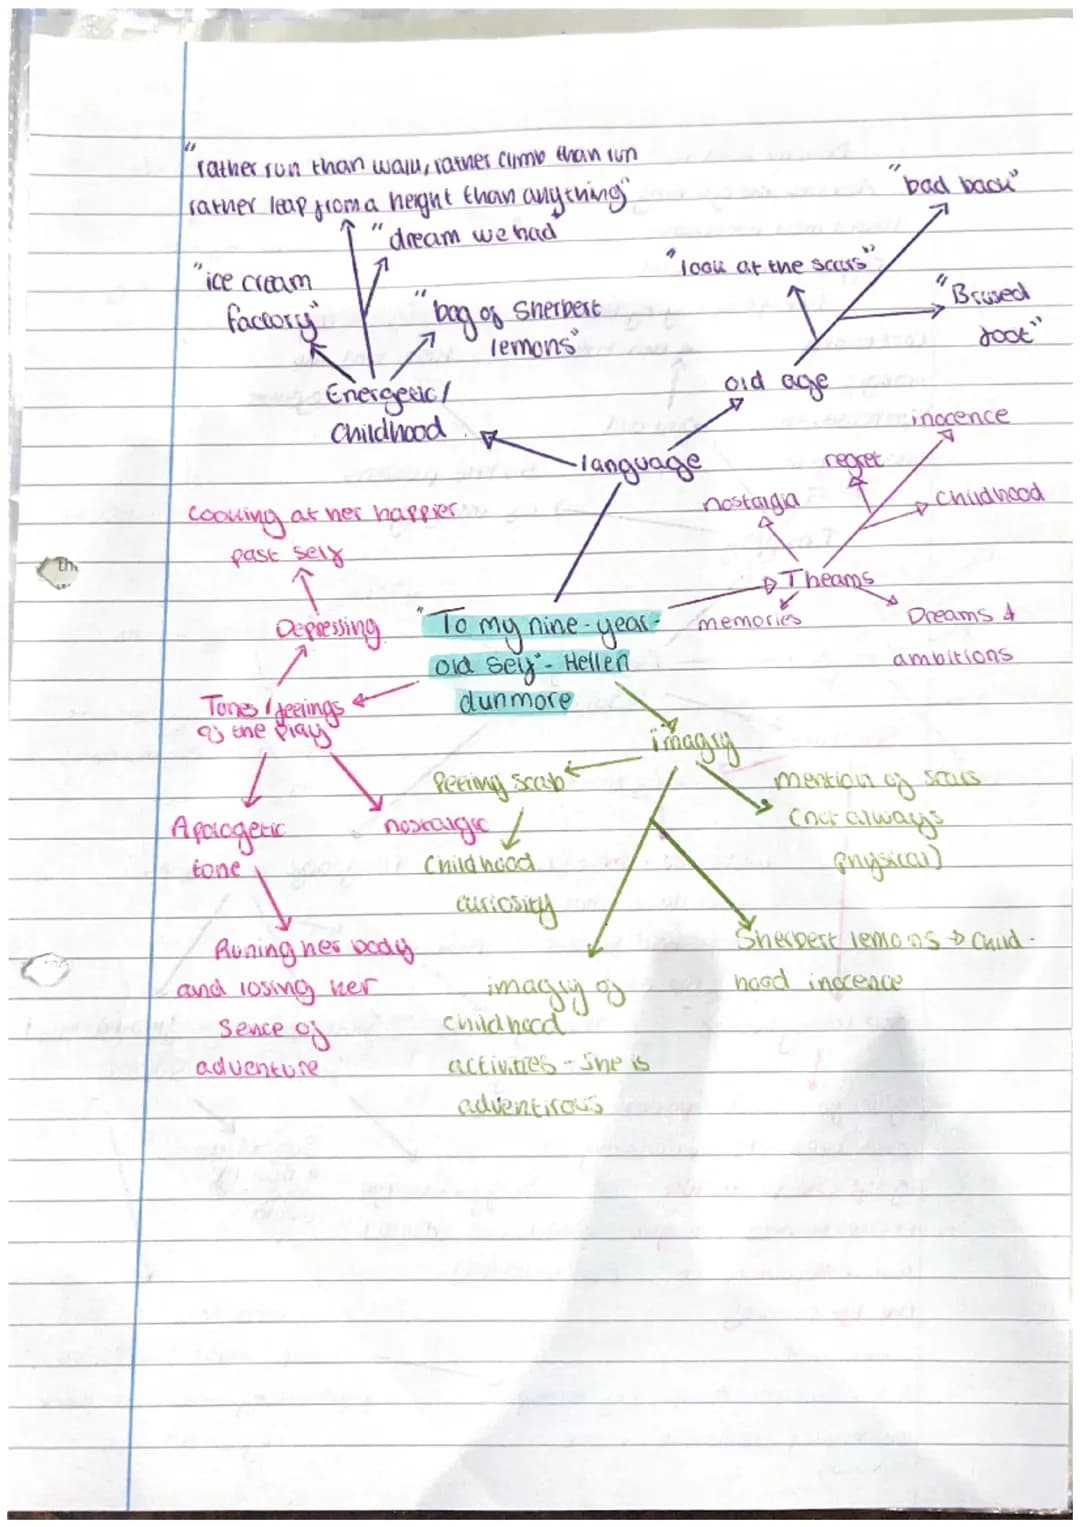 "rather run than walk, rather climb than run
rather leap from a height than anything"
"dream we had"
"ice cream
factory"
"bag of Sherbert
lemons"
Energetic/
Childhood
"bad back"
"look at the scars"
"Brused
foot"
old age
language
inocence
regret
nostalgia
Childhood
Theams
memories
Dreams &
ambitions
Looking at her happier
past self
Depressing
"To my nine-year-
old self" - Hellen
dunmore
Tones/feelings
of the play
Apologetic
tone
nostalgic
Runing her body
and losing her
Sence of
adventure
imagry
Peeling scab
Childhood
curiosity
mention of scars
(not always
physical)
imagry of
childhood
activities - She is
adventirous
Sherbert lemons → Child-
hood inocence
th